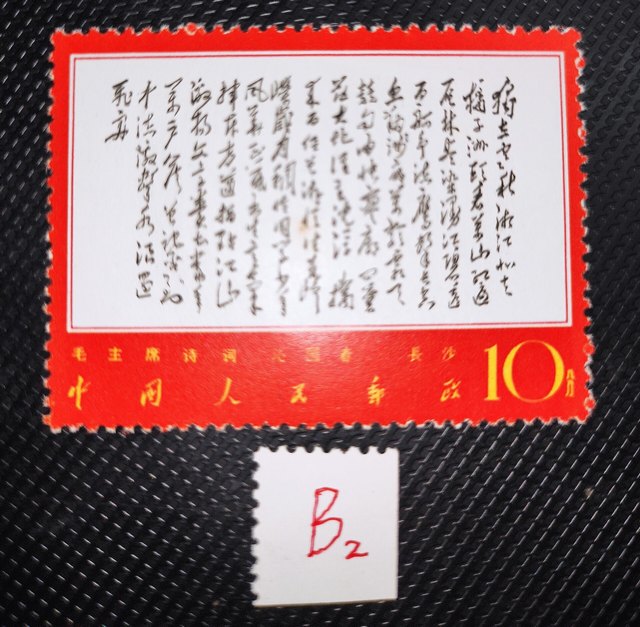 独立寒秋湘江北去
橘子洲头看万山红遍
层林尽染漫江碧透
百舸争流鹰击长空
鱼翔浅底万类霜天
竞自由怅寥廓问
苍茫大地谁主沉浮携
来百侣曾游忆往昔峥嵘
岁月稠恰同学少年
风华正茂书生意气
挥斥方遒指点江山
激扬文字粪土当年
万户侯曾记否到
中流击水浪遏
飞舟
毛主席诗词 沁园春 长沙
中国人民邮政 10分
B2